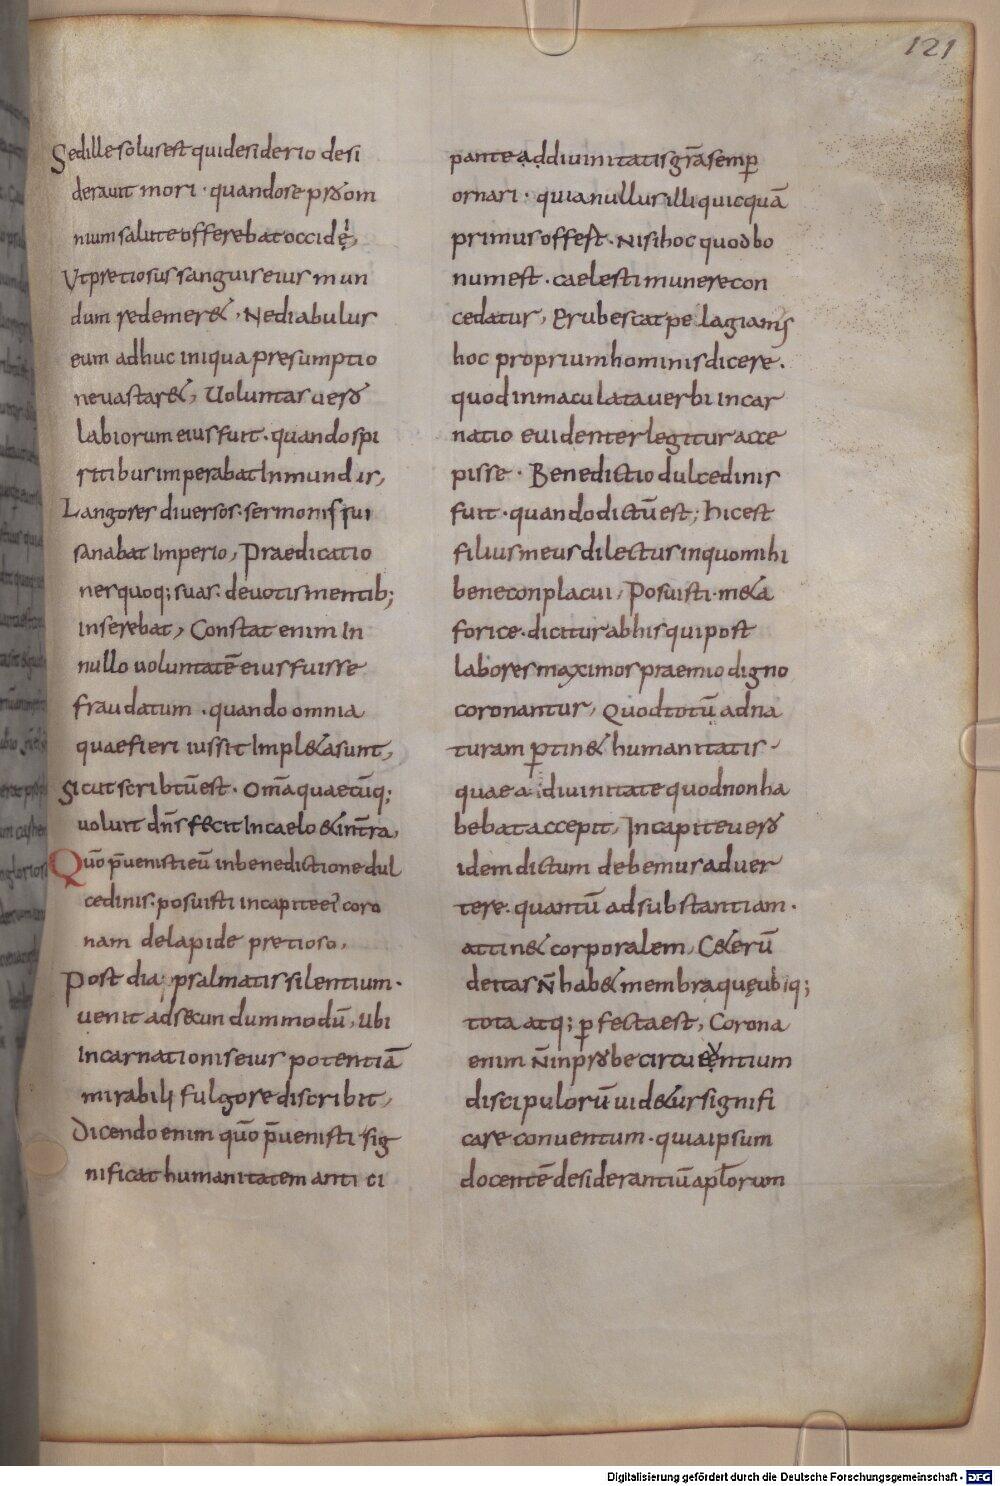 121
Sed ille solus est qui desiderio desi
deravit mori · quando se p̱ro om
nium salute offerebat occidẹi,
Ut pretiosus sanguis eius mun
dum redemer&, Ne diabulus
eum adhuc iniqua presumptio
ne vastar&, Voluntas uero
labiorum eius fuit · quando spi
ritibus imperabat Inmundis,
Langores diversos · sermonis sui
sanabat Imperio, Praedicatio
nes quoq; suas · devotis mentib;
inserebat, Constat enim In
nullo uoluntatē eius fuisse
fraudatum · quando omnia
quae fieri iussit Impl&a sunt,
Sicut scribtū est · Om̄a quaecūq;
uoluit dn̄s fecit In caelo & in tr̄a,
Quō p̄uenisti eū in benedictione dul
cedinis · posuisti in capite eī coro
nam de lapide pretioso,
Post dia psalmatis silentium ·
uenit ad secundum modū, Ubi
Incarnationis eius potentiā
mirabili fulgore discribit,
Dicendo enim quō p̄uenisti sig
nificat humanitatem anti ci
pante ad divinitatis gr̄a semꝑ
ornari · quia nullus illi quicquā
primus offest · Nisi hoc quod bo
num est · caelesti munere con
cedatur, Erubescat pelagianis
hoc proprium hominis dicere ·
quod inmaculata verbi incar
natio evidenter legitur acce
pisse · Benedictio dulcedinis
fuit · quando dictū est; Hic est
filius meus dilectus in quo mihi
bene conplacui, Posuisti · m&a
forice · dicitur ab his qui post
labores maximos praemio digno
coronantur, Quod totū ad na
turam ꝑtin& humanitatis ·
quae a divinitate quod non ha
bebat accepit, In capite uero
idem dictum debemus adver
tere · quantū ad substantiam ·
attin& corporalem, C&erū
deitas n̄ hab& membra quę ubiq;
tota atq; ꝑfecta est, Corona
enim n̄ inprobe circueuntium
discipulorū uid&ur signifi
care conventum · quia ipsum
docentē desiderantiū apl̄orum
Digitalisierung gefördert durch die Deutsche Forschungsgemeinschaft - DFG